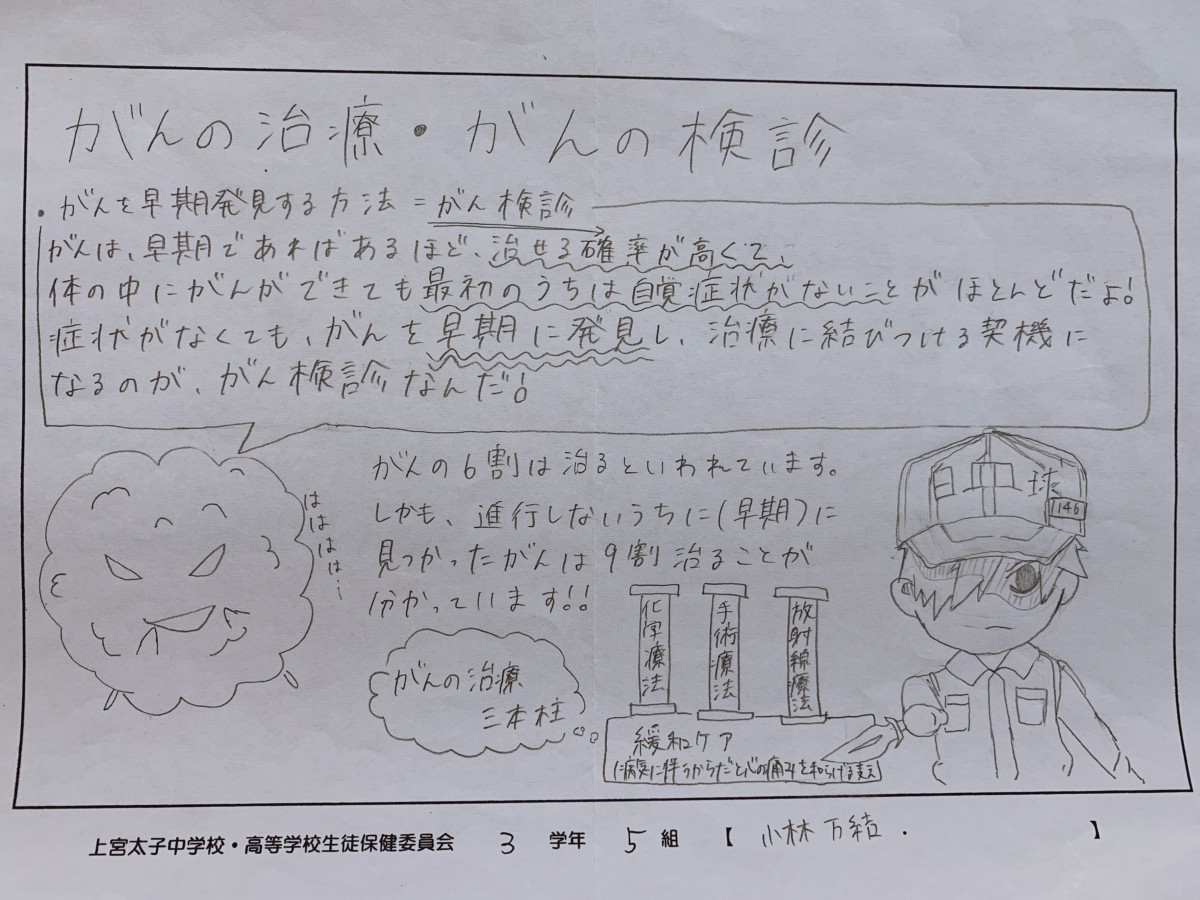 がんの治療・がんの検診
・がんを早期発見する方法=がん検診
がんは、早期であればあるほど、治せる確率が高くて、
体の中にがんができても最初のうちは自覚症状がないことがほとんどだよ!
症状がなくても、がんを早期に発見し、治療に結びつける契機に
なるのが、がん検診なんだ!
はははは…
がんの6割は治るといわれています。
しかも、進行しないうちに(早期)に
見つかったがんは9割治ることが
分かっています!!
がんの治療
三本柱
化学療法
手術療法
放射線療法
緩和ケア
(病気に伴うからだと心の痛みを和らげる支え)
白血球
146
上宮太子中学校・高等学校生徒保健委員会 3 学年 5 組 【 小林 万結 . 】